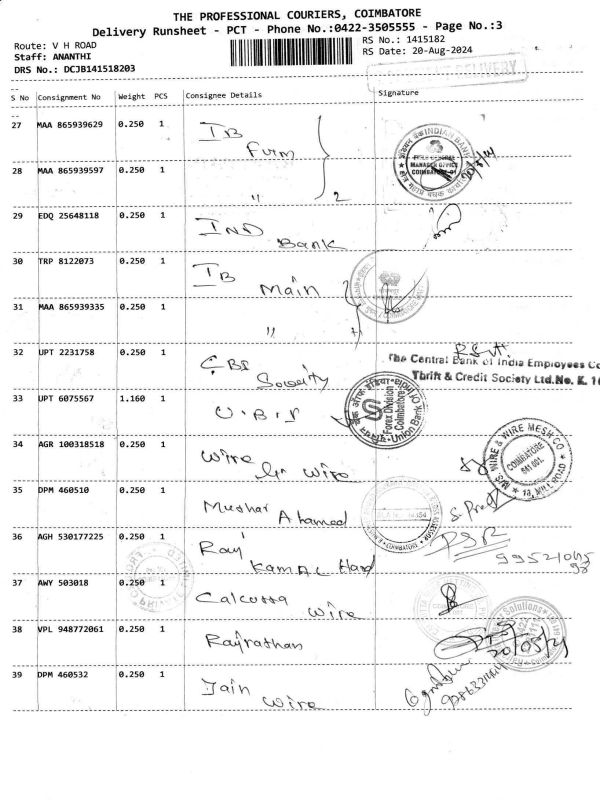 THE PROFESSIONAL COURIERS, COIMBATORE
Delivery Runsheet - PCT - Phone No.:0422-3505555 - Page No.:3
Route: V H ROAD
Staff: ANANTHI
DRS No.: DCJB141518203
RS No.: 1415182
RS Date: 20-Aug-2024
DELIVERY
S No Consignment No Weight PCS Consignee Details Signature
27 MAA 865939629 0.250 1 IB Furm
INDIAN BANK
28 MAA 865939597 0.250 1 " 2
29 EDQ 25648118 0.250 1 IND Bank
30 TRP 8122073 0.250 1 IB Main
31 MAA 865939335 0.250 1 "
32 UPT 2231758 0.250 1 CBI Society
The Central Bank of India Employees Co
Thrift & Credit Society Ltd. No. K. 1
33 UPT 6075567 1.160 1 U.B.I
Forex Division Coimbatore
Union Bank Of India
34 AGR 100318518 0.250 1 Wire Wire
M/S. WIRE & WIRE MESH CO
COIMBATORE
641 001.
18, MILL ROAD
35 DPM 460510 0.250 1 Ahamed
36 AGH 530177225 0.250 1 Raj Kamal Hard
37 AWY 503018 0.250 1 Calcutta Wire
38 VPL 948772061 0.250 1 Rajrathan
Solutions
39 DPM 460532 0.250 1 Jain Wire